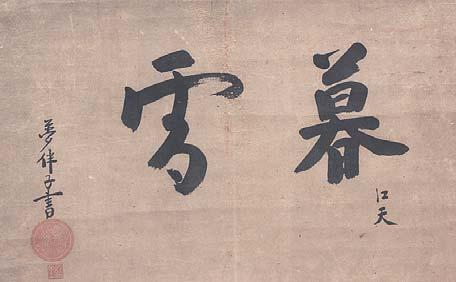 江天
暮雪
夢伴子書